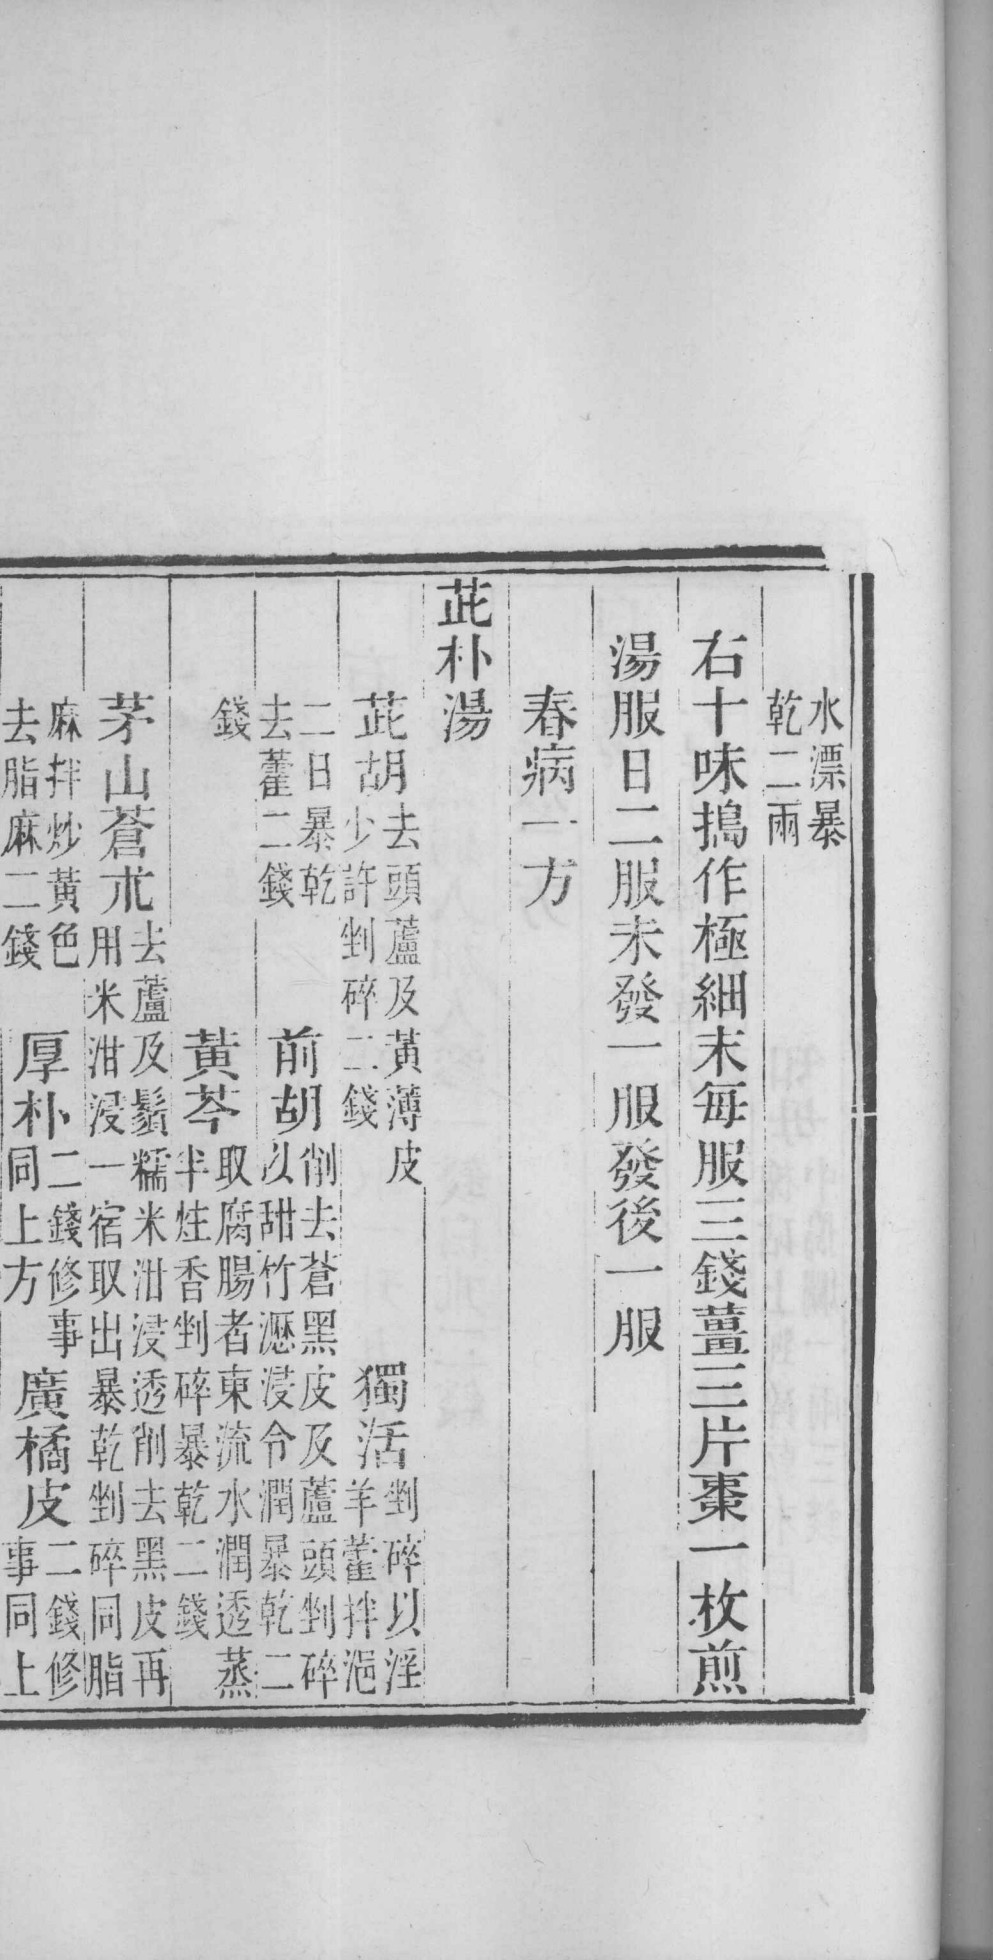 水漂暴
乾二兩
右十味搗作極細末每服三錢薑三片棗一枚煎
湯服日二服未發一服發後一服
春病一方
茈朴湯
茈胡去頭蘆及黃薄皮
少許剉碎二錢
獨活剉碎以淫
羊藿拌浥
二日暴乾
去藿二錢
前胡削去蒼黑皮及蘆頭剉碎
以甜竹瀝浸令潤暴乾二
錢
黃芩取腐腸者東流水潤透蒸
半炷香剉碎暴乾二錢
茅山蒼朮去蘆及鬚糯米泔浸透削去黑皮再
用米泔浸一宿取出暴乾剉碎同脂
麻拌炒黃色
去脂麻二錢
厚朴二錢修事
同上方
廣橘皮二錢修
事同上